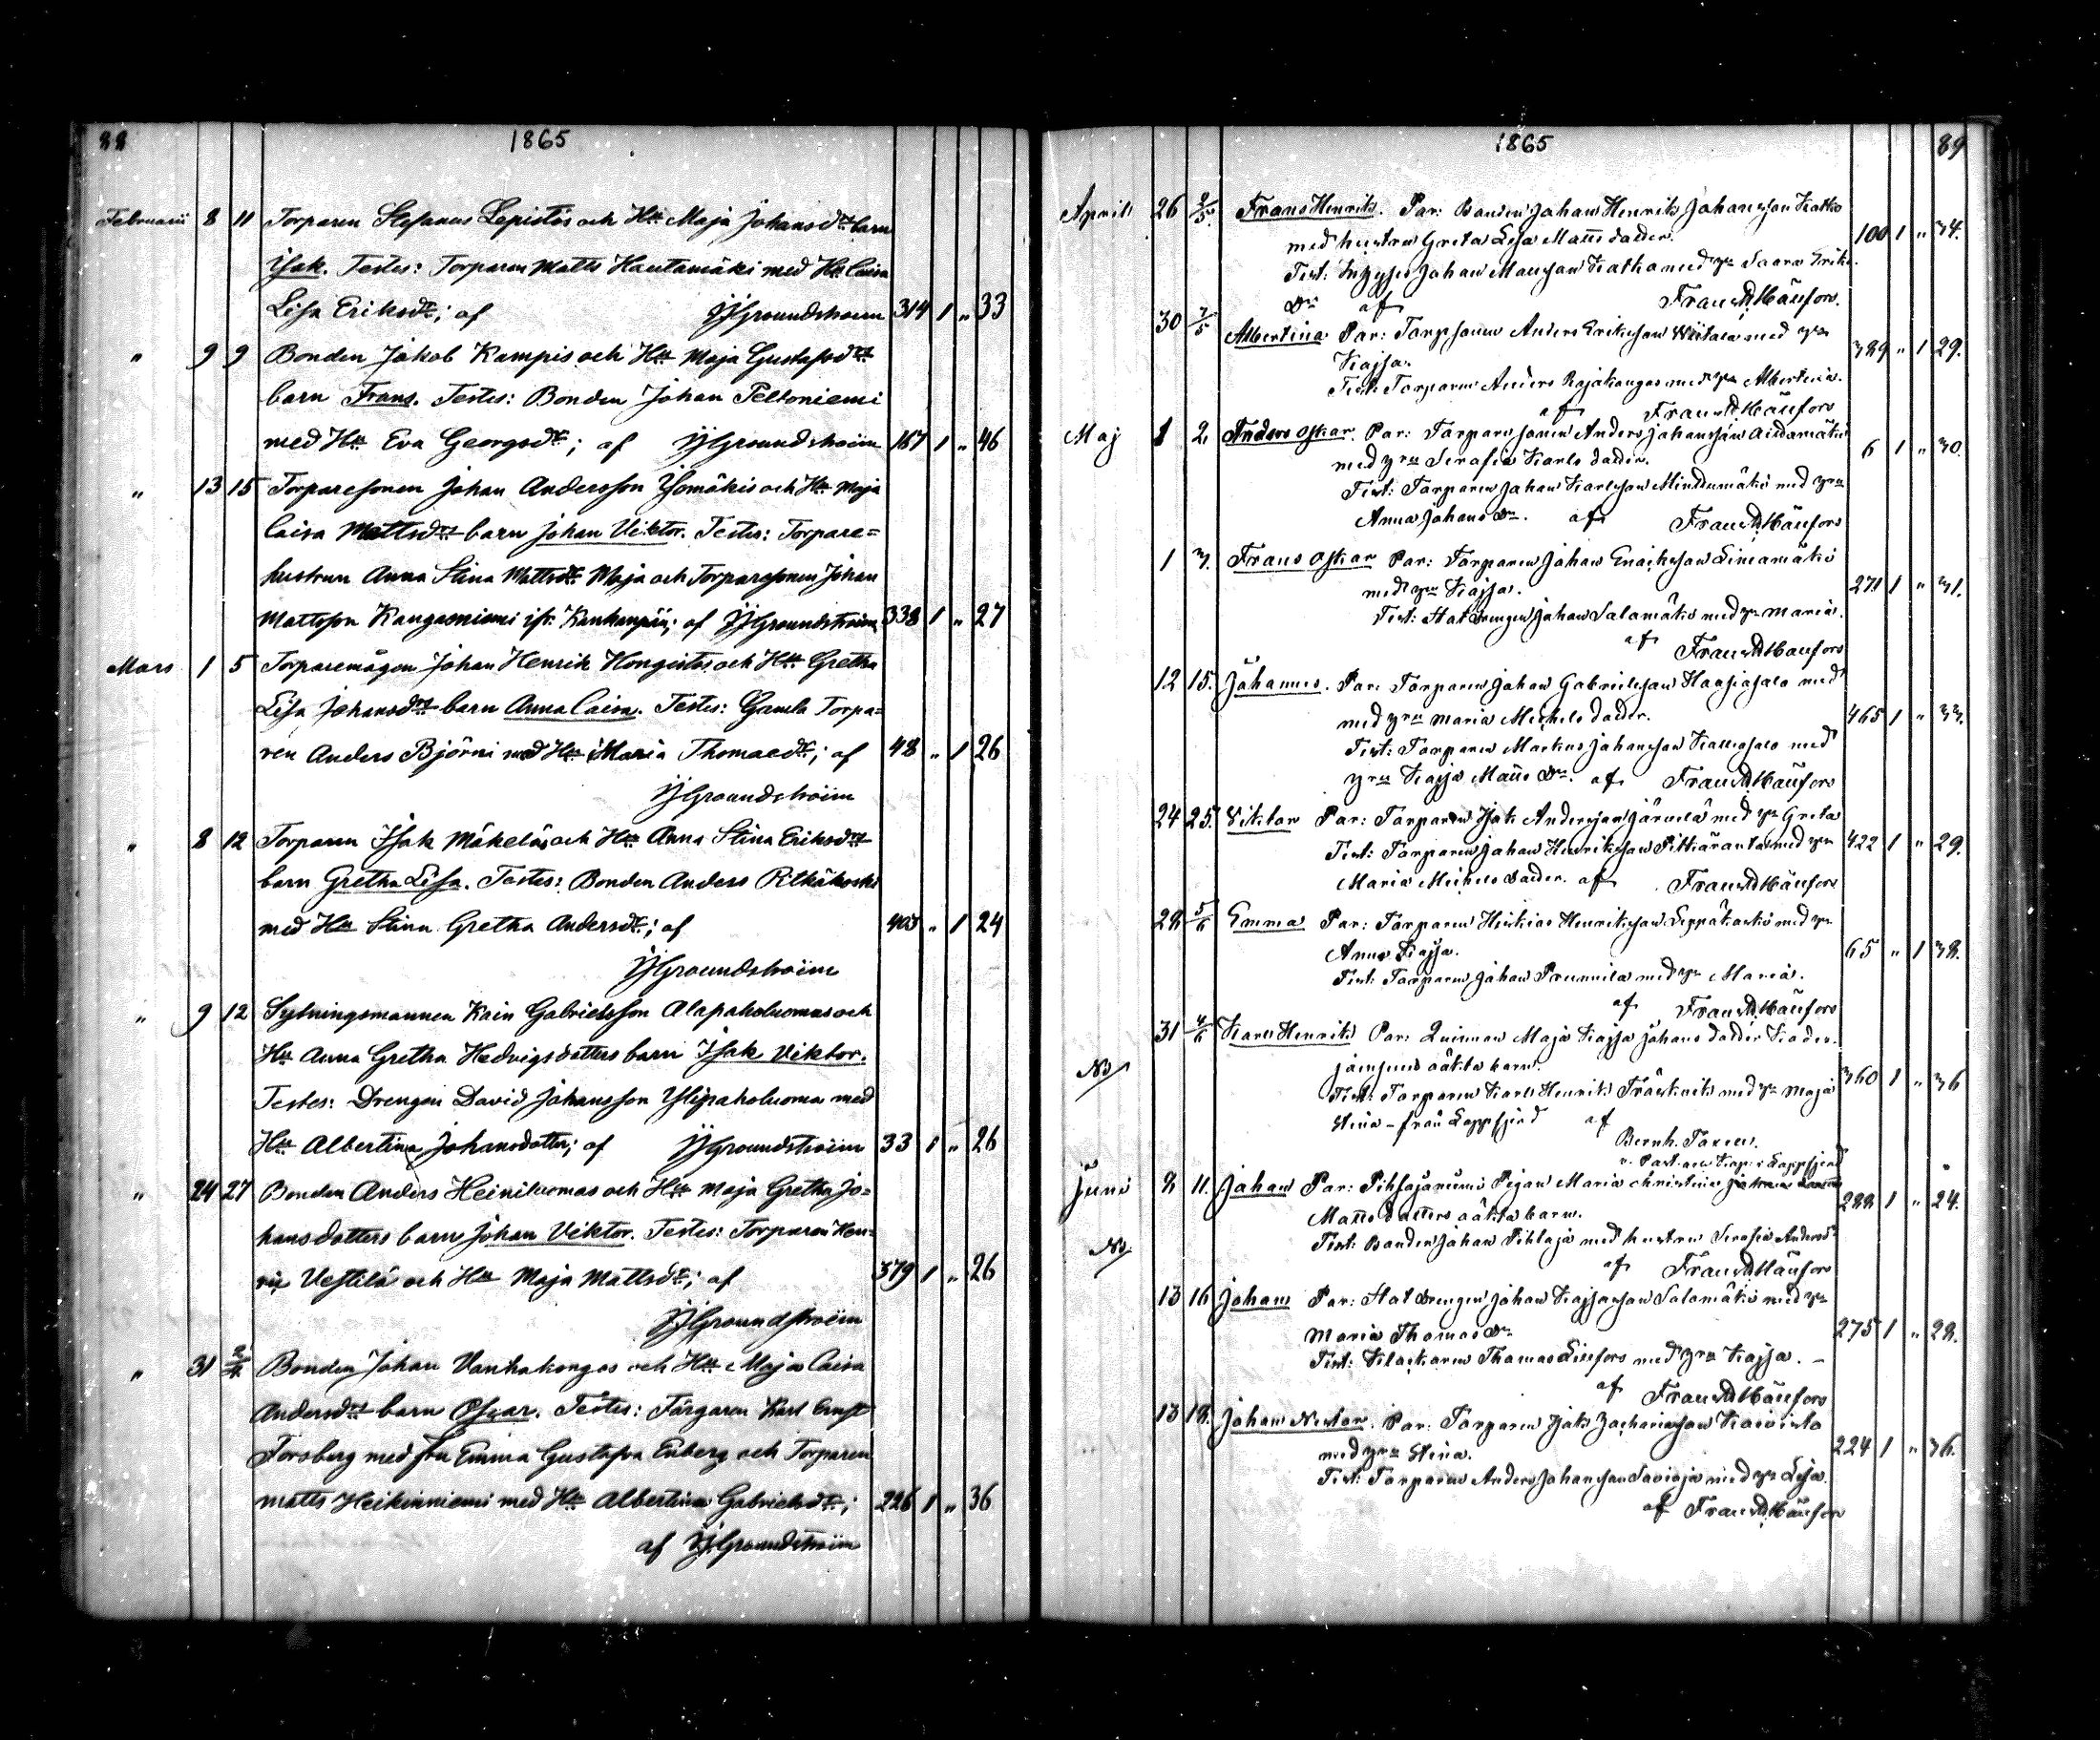 88 1865
Februarii 8 11 Torparen Stefanus Lepistös och Hu Maja Johansdrs barn
Isak. Testes: Torparen Matts Hautamäki med Hu Caisa
Lisa Eriksdr; af JJGroundstroëm 314 1 " 33
" 9 9 Bonden Jakob Kampis och Hu Maja Gustafsdrs
barn Frans. Testes: Bonden Johan Peltoniemi
med Hu Eva Georgsdr; af JJGroundstroëm 167 1 " 46
" 13 15 Torparesonen Johan Andersson Isomäkis och Hu Maja
Caisa Mattsdrs barn Johan Viktor. Testes: Torpare=
hustrun Anna Stina Mattsdr Maja och Torparesonen Johan
Mattsson Kangasniemi ifr. Kankanpää; af JJGroundstroëm 338 1 " 27
Mars 1 5 Torparemågen Johan Henrik Hongistos och Hu Gretha
Lisa Johansdrs barn Anna Caisa. Testes: Gamla Torpa=
ren Anders Björni med Hu Maria Thomasdr; af 48 " 1 26
JJGroundstroëm
" 8 12 Torparen Isak Mäkeläs och Hu Anna Stina Eriksdrs
barn Gretha Lisa. Testes: Bonden Anders Pitkäkoski
med Hu Stina Gretha Andersdr; af 403 " 1 24
JJGroundstroëm
" 9 12 Sytningsmannen Kain Gabrielsson Alapaholuomas och
Hu Anna Gretha Hedvigsdotters barn Isak Viktor.
Testes: Drengen David Johansson Ylipaholuoma med
Hu Albertina Johansdotter; af JJGroundstroëm 33 1 " 26
" 24 27 Bonden Anders Heiniluomas och Hu Maja Gretha Jo=
hansdotters barn Johan Viktor. Testes: Torparen Hen=
rik Vestilä och Hu Maja Mattsdr; af 379 1 " 26
JJGroundstroëm
" 31 2/4 Bonden Johan Vanhakangas och Hu Maja Caisa
Andersdrs barn Oskar. Testes: Färgaren Karl Ernst
Forsberg med fru Emma Gustafva Enberg och Torparen
Matts Heikinniemi med Hu Albertina Gabrielsdr; 226 1 " 36
af JJGroundstroëm
1865 89
April 26 2/5 Frans Henrik. Par: Bonden Johan Henrik Johansson Katko
med hustru Greta Lisa Matts dotter. 100 1 " 34.
Test: Johan Mansson Katka med hu Saara Eriks
dr af Frans W Hänfors.
30 7/5 Albertina Par: Torpsonen Anders Eriksson Wiitala med hu
Kajsa. 389 " 1 29.
Test: Torparen Anders Rajakangas med hu Albertina.
af Frans W Hänfors
Maj 1 2. Anders Oskar. Par: Torparesonen Anders Johansson
med hru Serafia Karls dotter. 6 1 " 30.
Test: Torparen Johan Karlsson Minddumäki med hru
Anna Johans dr. af Frans W Hänfors
1 3. Frans Oskar Par: Torparen Johan Liniamäki
med hru Kajsa. 271 1 " 31.
Test: Statdrengen Johan Salamäki med hu Maria.
af Frans W Hänfors
12 15. Johannes. Par: Torparen Johan Gabrielsson Haapasalo med
med hru Maria Michels dotter. 465 1 " 33.
Test: Torparen Markus Johansson Kalliosalo med
hru Kajsa Matts dr. af Frans W Hänfors
24 25. Viktor Par: Torparen Isak Andersson Järvelä med hu Greta
Test: Torparen Johan Henriksson Pitkäranta med hu 422 1 " 29.
Maria Michels dotter. af Frans W Hänfors
28 5/6 Emma Par: Torparen Heskias Henriksson Leppäkoski med hu
Anna Kajsa. 65 " 1 38.
Test: Torparen Johan Prunnila med hu Maria.
af Frans W Hänfors
31 4/6 Karl Henrik Par: Quinnan Maja Kajsa Johans dotter
NB oäkta barn. 360 1 " 36
Test: Torparen Karl Henrik Träsknick med hu Maja
Stina - från Lappfjerd af
Bernh. Taxem.
v. Past. och Kap. i Lappfjerd
Juni 8 11. Johan Par: Pihlajaniemi Pigan Maria Christina
Matts dotters oäkta barn. 288 1 " 24.
NB. Test: Bonden Johan Pihlaja med hustru Serafia Andersdr
af Frans W Hänfors
13 16 Johan Par: Stat drengen Johan Salamäki med hru
Maria Thomas dr 275 1 " 28.
Test: Klockaren Thomas Linfors med hru Kajsa.
af Frans W Hänfors
13 18. Johan Nestor. Par: Torparen Isak Zachariasson Kaivisto
med hru Stina. 224 1 " 36.
Test: Torparen Anders Johansson Savioja med hu Lisa.
af Frans W Hänfors